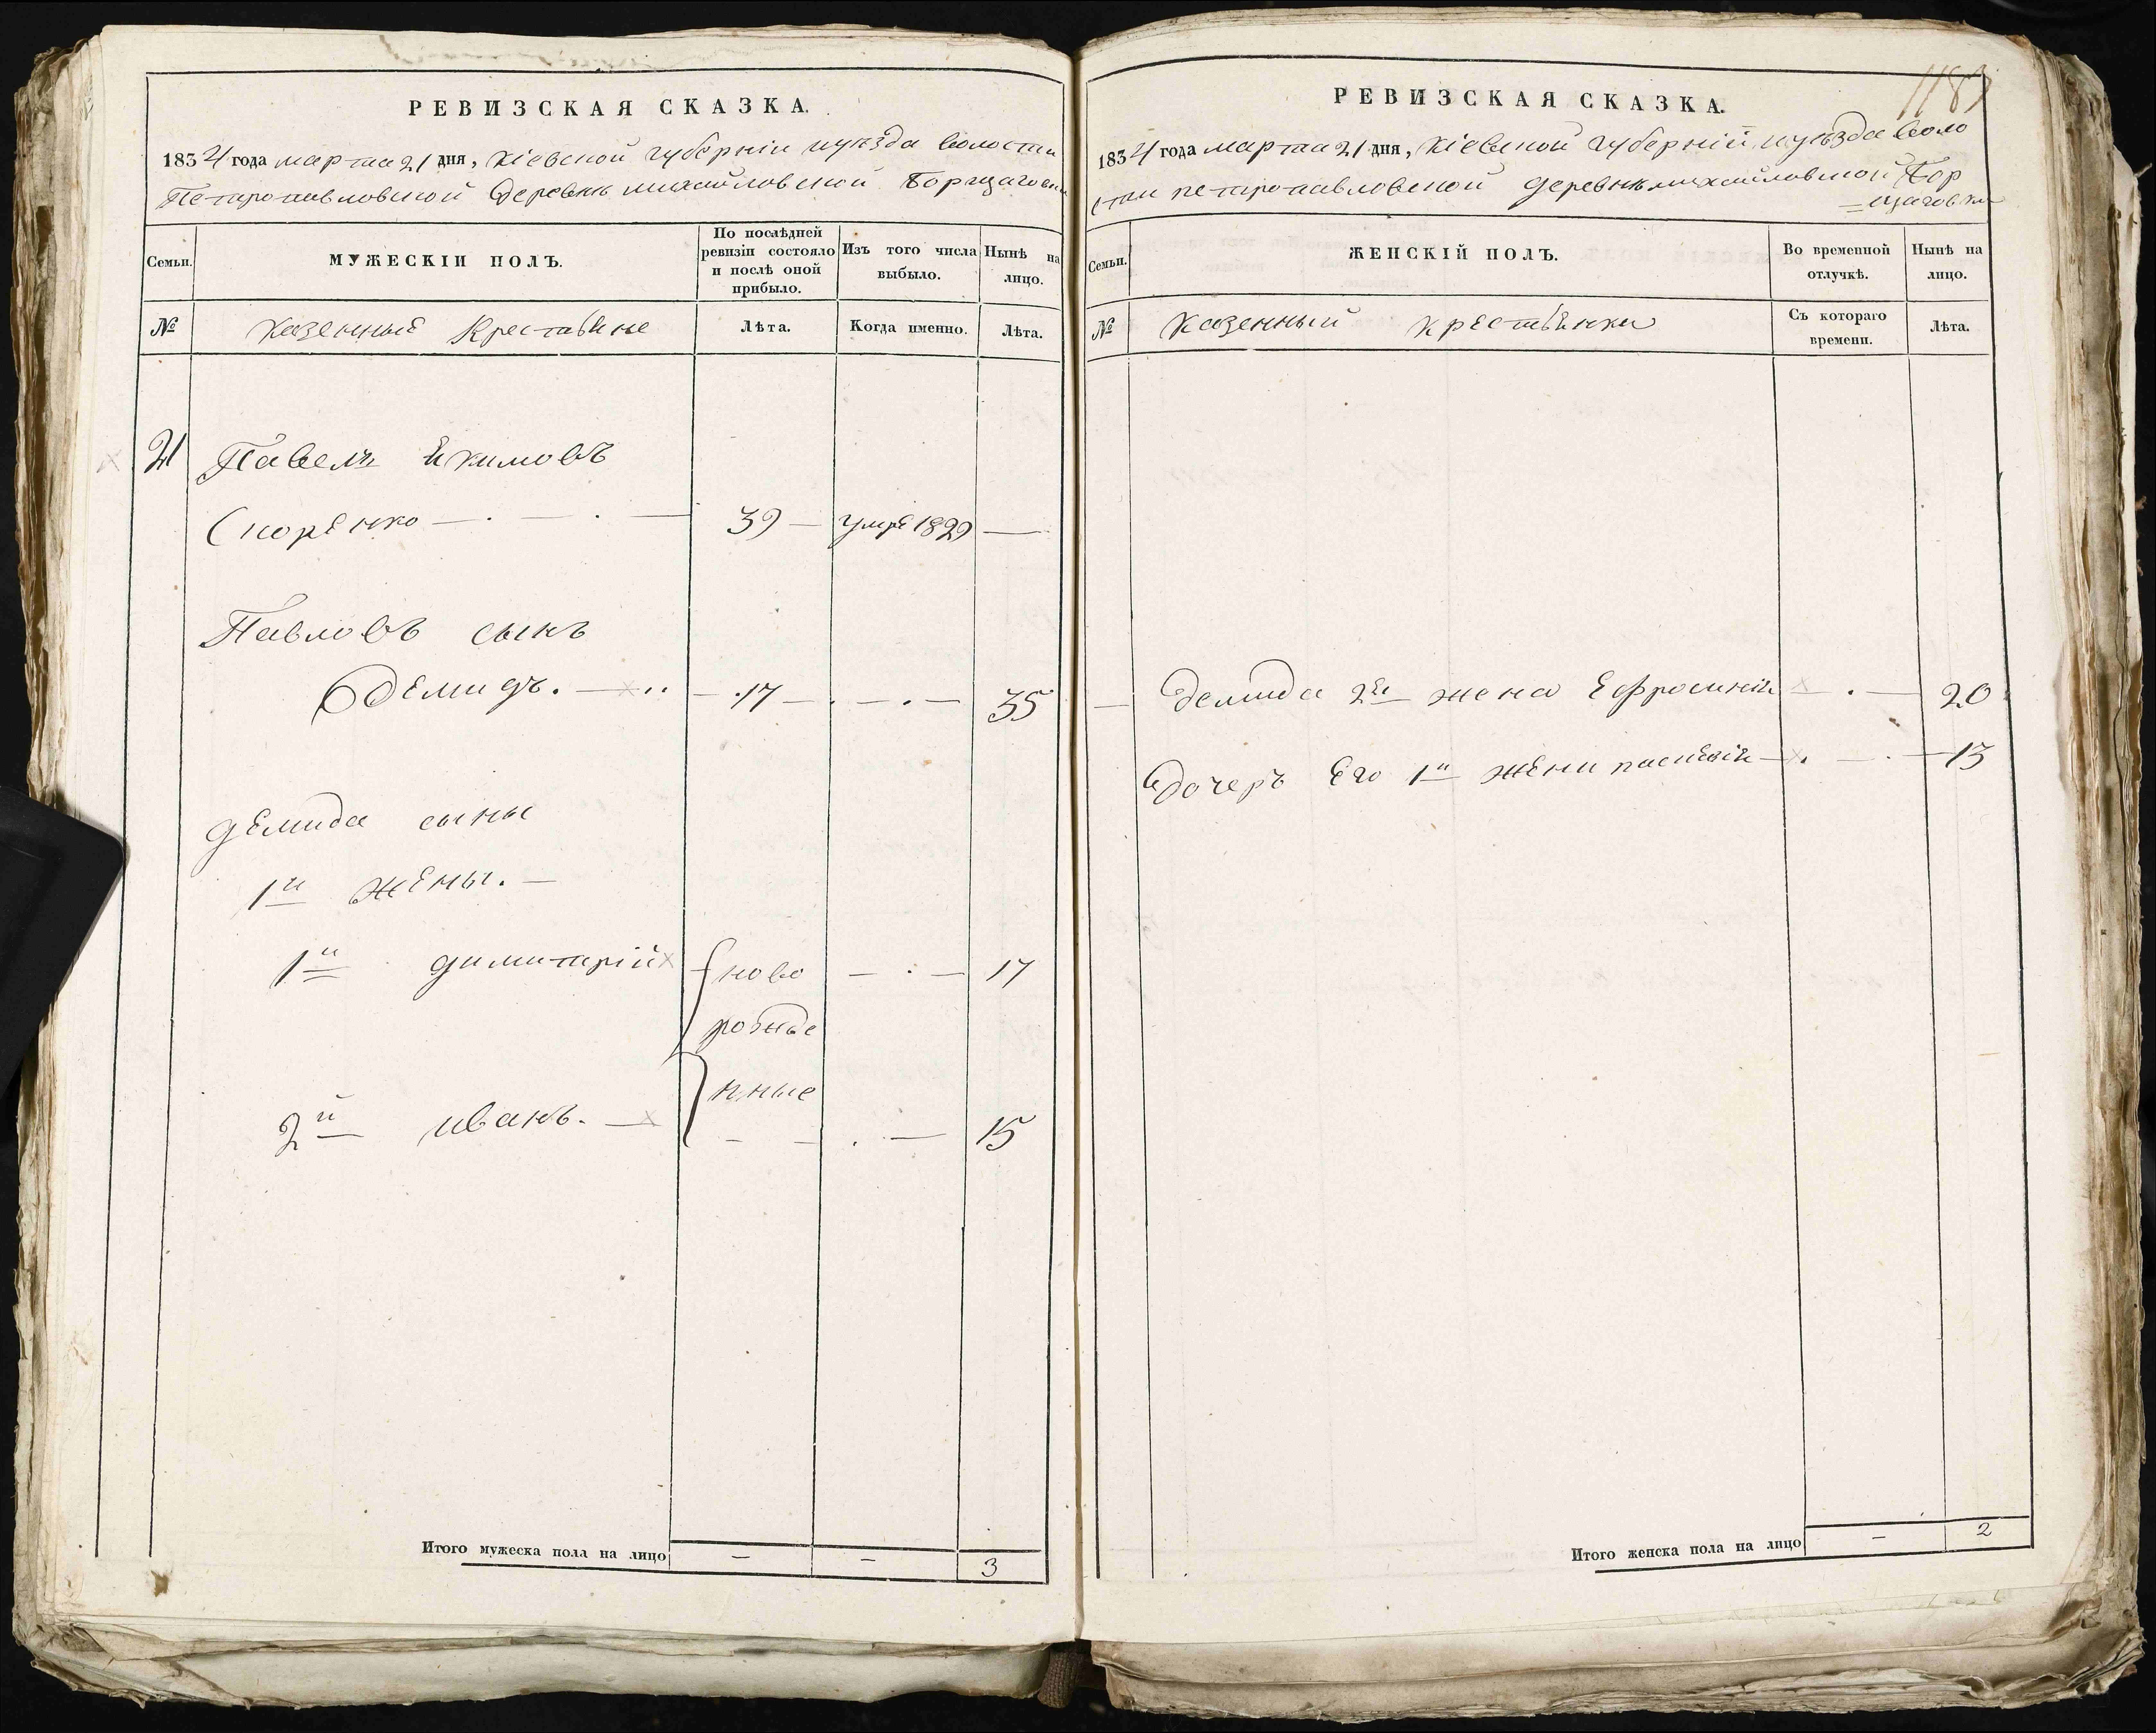 РЕВИЗСКАЯ СКАЗКА.
1834 года марта 21 дня, Кіевской губерніи и уезда волости
Петропавловской деревнѣ михайловской Борщаговки
Семьи.
МУЖЕСКІЙ ПОЛЪ.
По послѣдней ревизіи состояло и послѣ оной прибыло.
Изъ того числа выбыло.
Нынѣ на лицо.
№
Казенные Крестьяне
Лѣта.
Когда именно.
Лѣта.
21 Павелъ Екимовъ
Скоренко 39 умре 1829
Павловъ сынъ
Демидъ. 17 35
демида сыны
1й жены.
1й димитрій ново 17
рожде
нные
2й иванъ. 15
Итого мужеска пола на лицо — — 3
1183
РЕВИЗСКАЯ СКАЗКА.
1834 года марта 21 дня, Кіевской губерній, и уѣзда воло
сти петропавловской деревнѣ михайловской Бор
=щаговки
Семьи.
ЖЕНСКІЙ ПОЛЪ.
Во временной отлучкѣ.
Нынѣ на лицо.
№
Казенный крестьянки
Съ котораго времени.
Лѣта.
Демида 2я жена Ефросинія 20
дочеръ Его 1й жени 13
Итого женска пола на лицо — 2